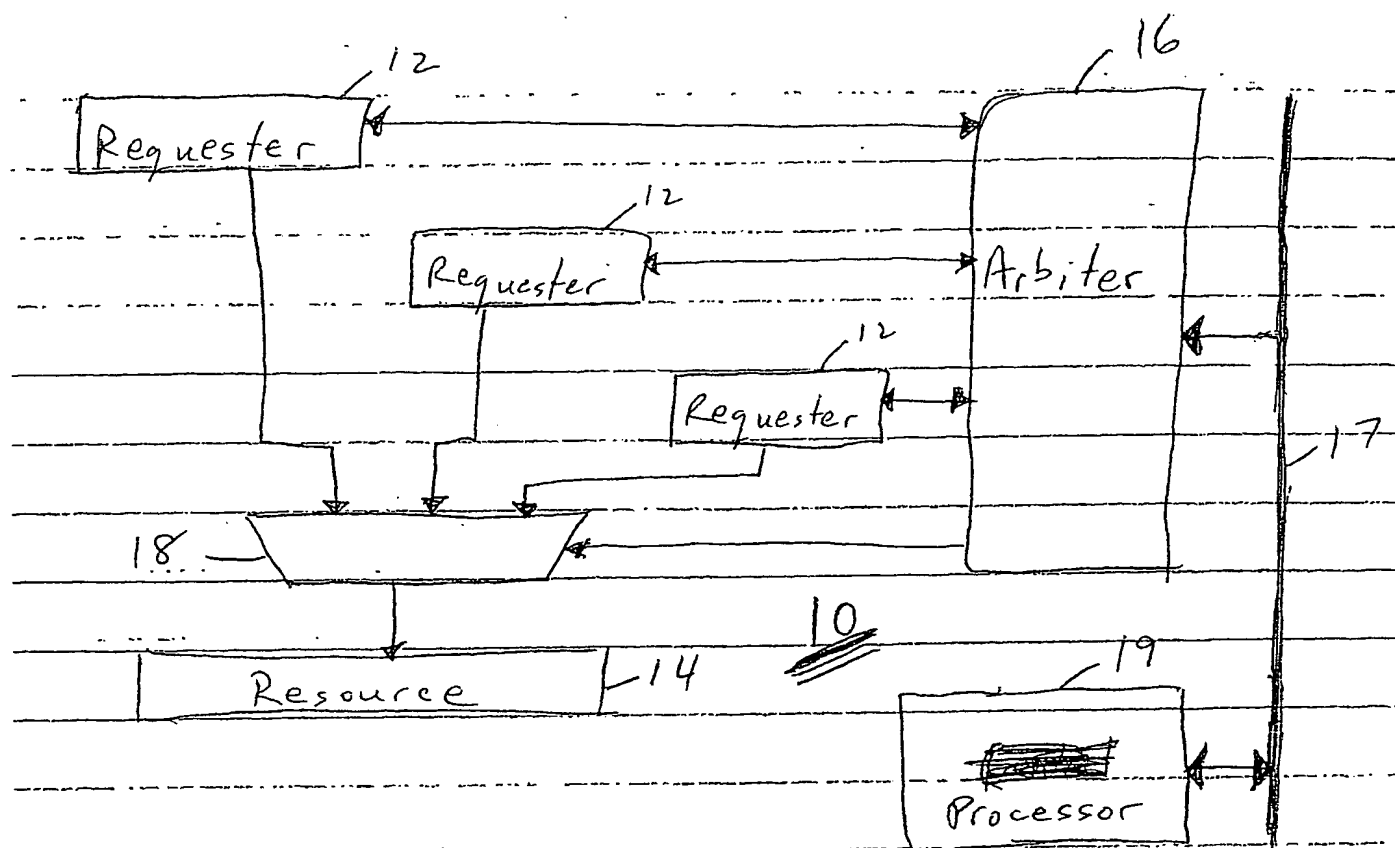 16
12
Requester
12
Requester
Arbiter
12
Requester
17
18
10
19
Resource
14
Processor